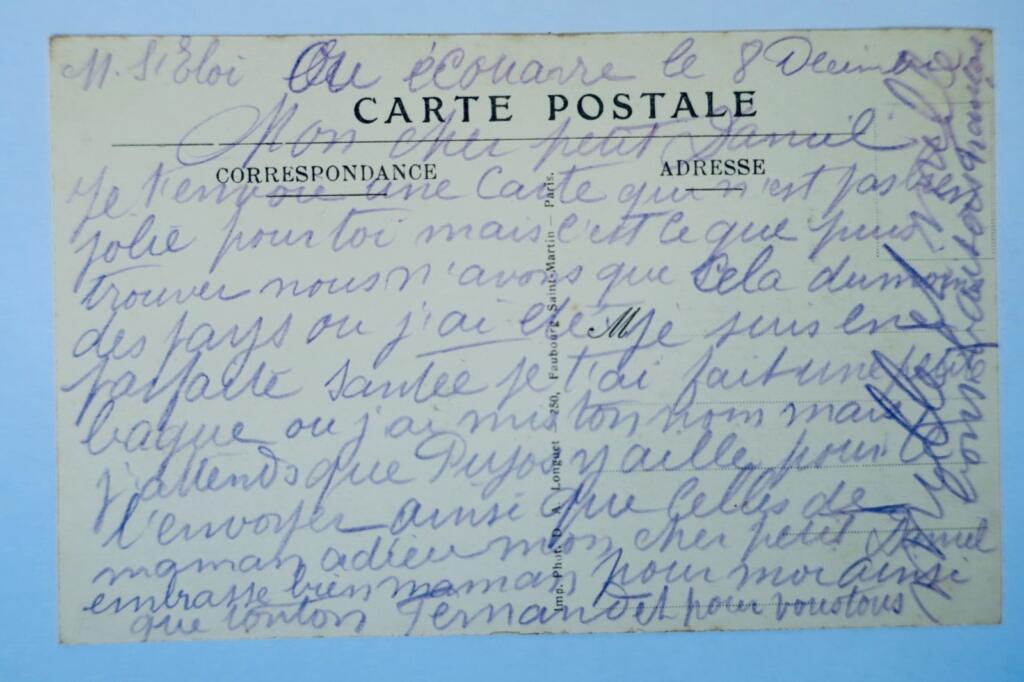 M. St Eloi Ou écouarre le 8 Decembre
CARTE POSTALE
Mon cher petit Daniel
CORRESPONDANCE
ADRESSE
Je t'envoie une Carte qui n'est pas bien
jolie pour toi mais c'est ce que puis
trouver nous n'avons que cela du moins
des pays ou j'ai été. Je suis en
M
parfaite santée je t'ai fait une petite
bague ou j'ai mis ton nom mais
j'attends que Pujos y aille pour
l'envoyer ainsi que celles de
maman adieu mon cher petit Daniel
embrasse bien maman pour moi ainsi
que tonton Fernand et pour vous tous
Imp. Phot. D. A. Longuet 250, Faubourg Saint-Martin — Paris.